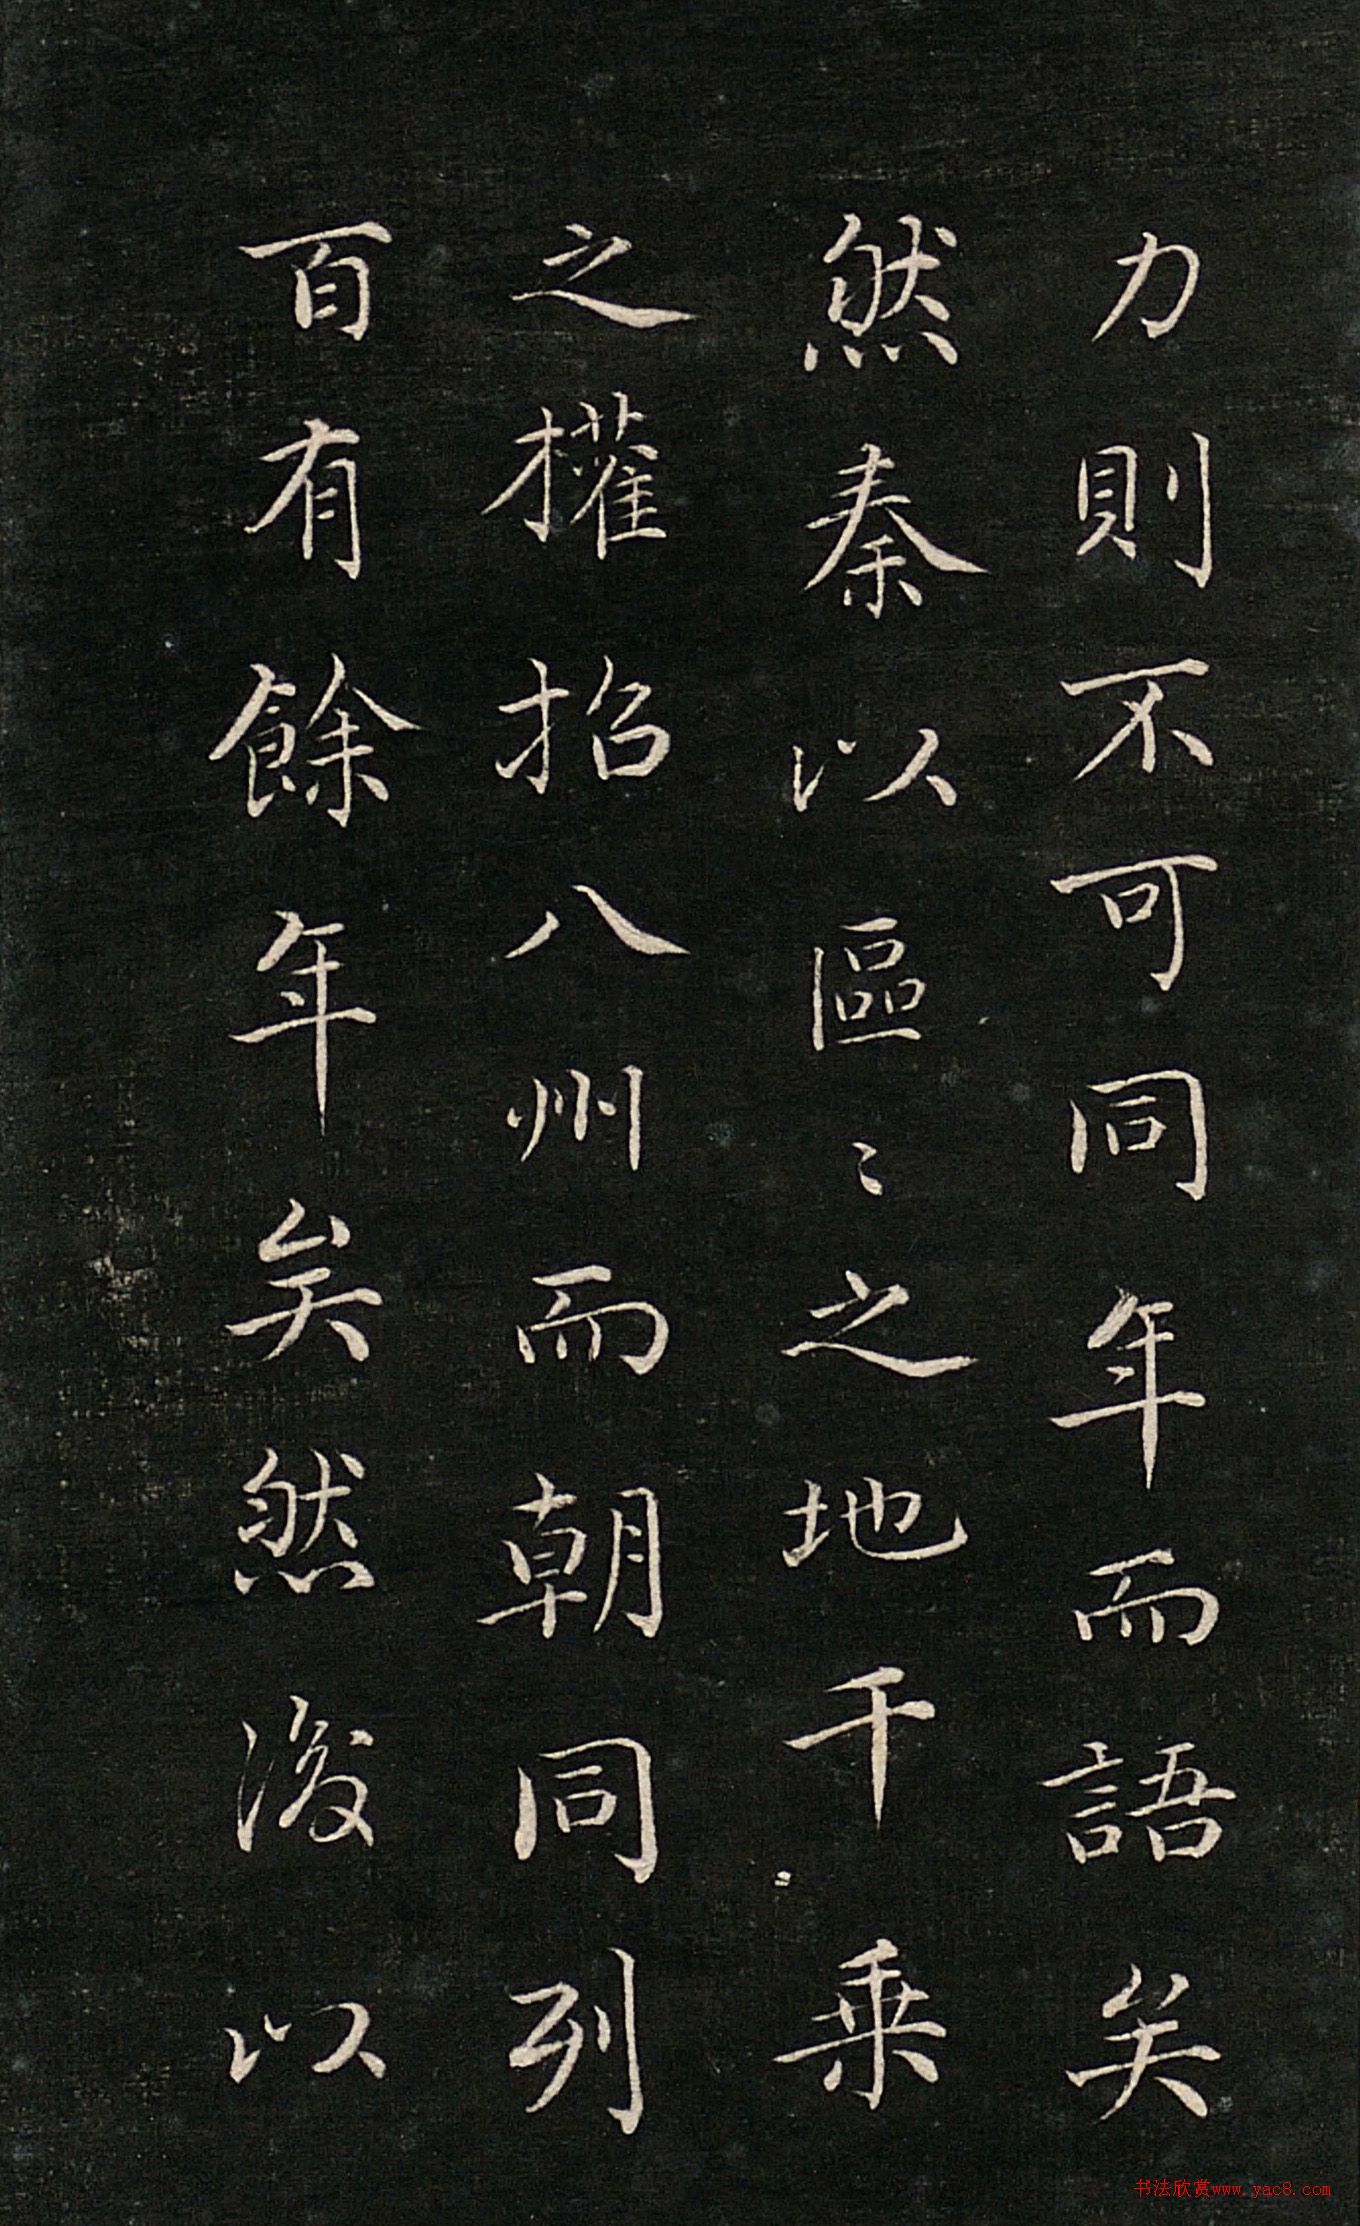 力則不可同年而語矣
然秦以區〻之地千乗
之權招八州而朝同列
百有餘年矣然後以
书法欣赏www.yac8.com